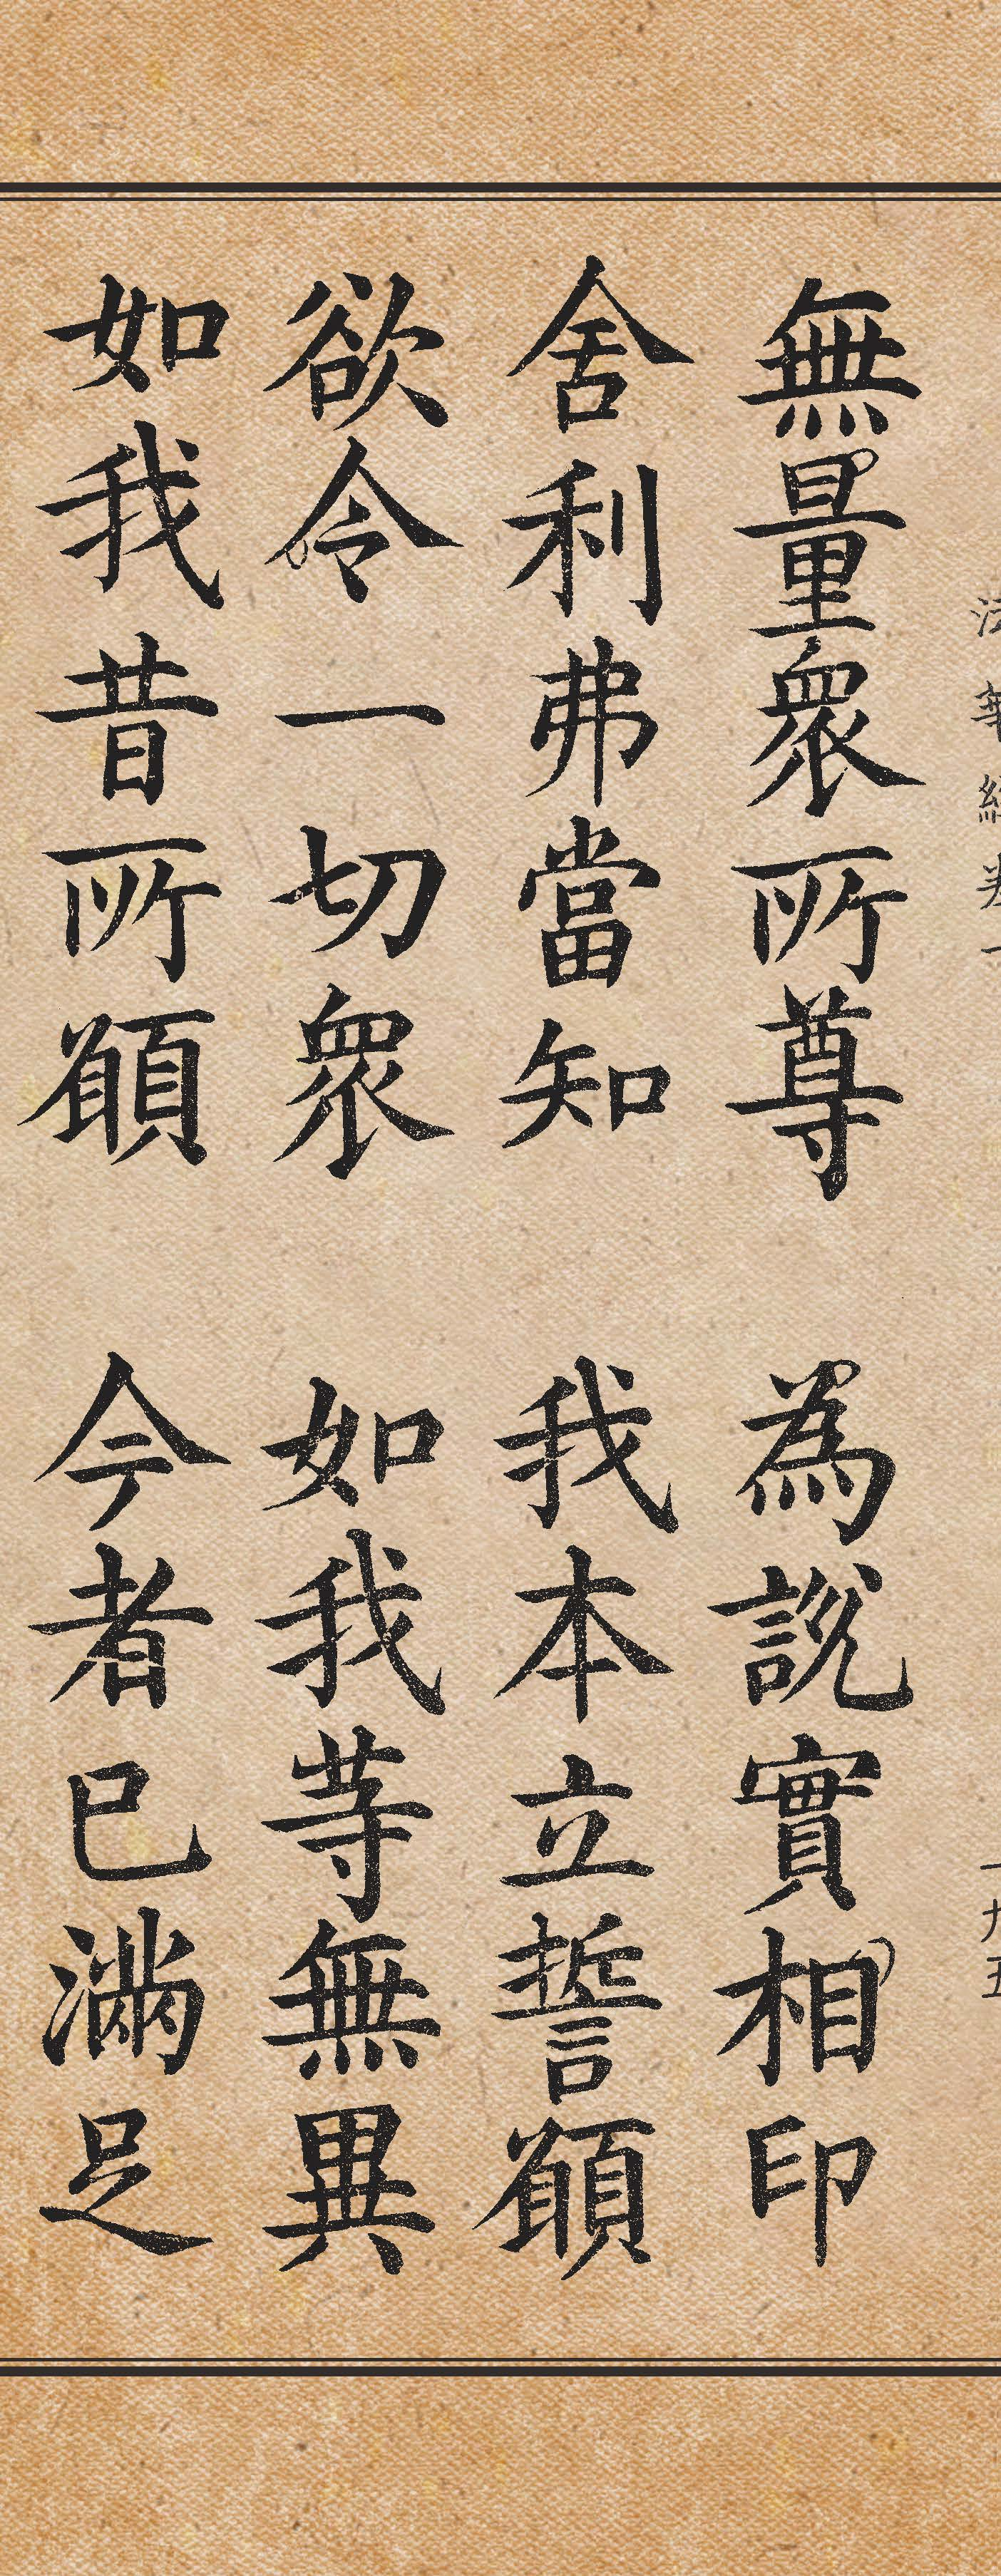 無量衆所尊 為說實相印
舍利弗當知 我本立誓願
欲令一切衆 如我等無異
如我昔所願 今者已滿足